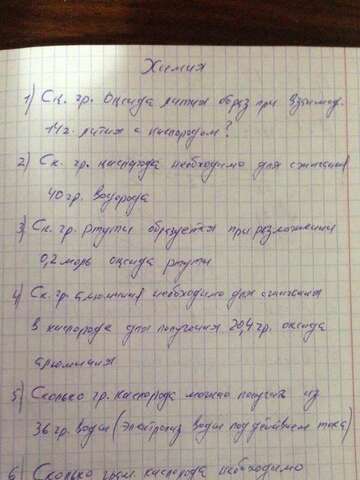 Химия
1) Ск. гр. оксида лития образ при взаимод.
14г. лития с кислородом?
2) Ск. гр. кислорода необходимо для сжигания
40 гр. водорода
3) Ск. гр. ртути образуется при разложении
0,2 моль оксида ртути
4) Ск. гр алюминия необходимо для сжигания
в кислороде для получения 20,4 гр. оксида
алюминия
5) Сколько гр. кислорода можно получить из
36 гр. воды (электролиз воды под действием тока)
6) Сколько грам. кислорода необходимо